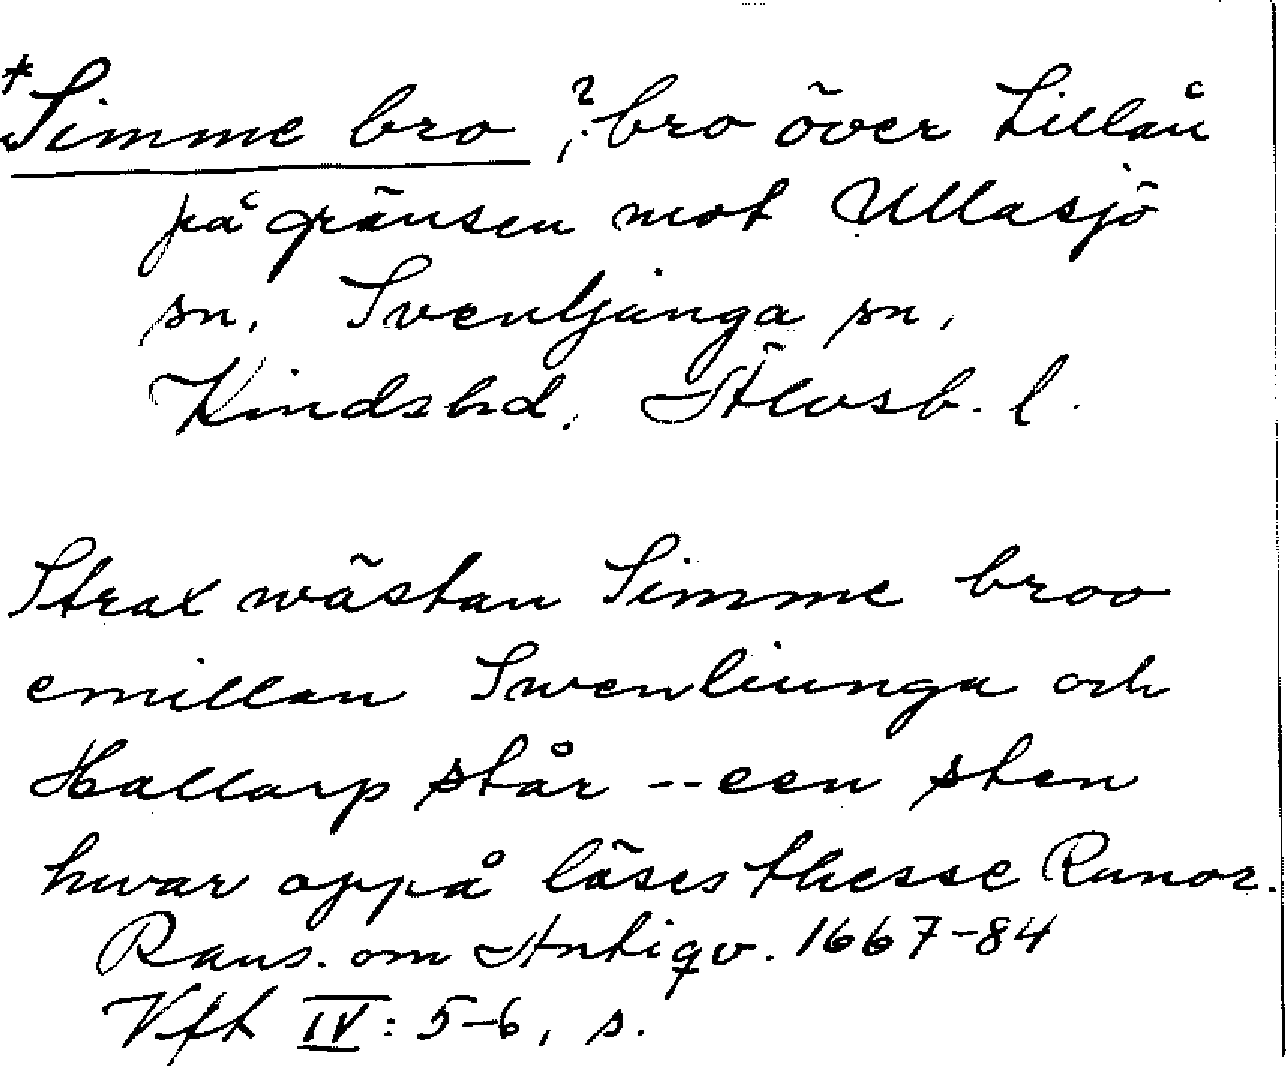 *Simme bro, ? bro över Lillån
på gränsen mot Ullasjö
sn, Svenljunga sn,
Kinds hd, Älvsb. l.
Strax wästan Simme broo
emillan Swenliunga och
Hallarp står -- een sten
hwar oppå läses thesse Runor.
Rans. om Antiqv. 1667-84
Vft IV: 5-6, s.